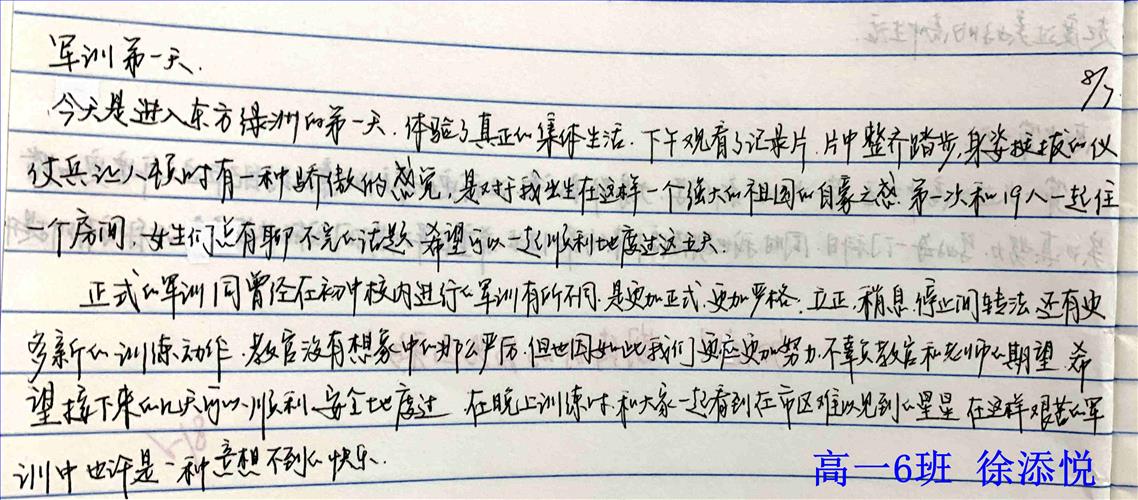 军训第一天.
8/7
今天是进入东方绿洲的第一天.体验了真正的集体生活.下午观看了记录片.片中整齐踏步,身姿挺拔的仪
仗兵让人顿时有一种骄傲的感觉,是对于我出生在这样一个强大的祖国的自豪之感.第一次和19人一起住
一个房间,女生们总有聊不完的话题.希望可以一起顺利地度过这五天.
正式的军训同曾经在初中校内进行的军训有所不同.是更加正式.更加严格.立正,稍息,停止间转法,还有更
多新的训练动作.教官没有想象中的那么严厉.但也因如此我们更应更加努力.不辜负教官和老师的期望.希
望接下来的几天可以顺利安全地度过.在晚上训练时.和大家一起看到在市区难以见到的星星.在这样艰苦的军
训中也许是一种意想不到的快乐.
高一6班 徐添悦